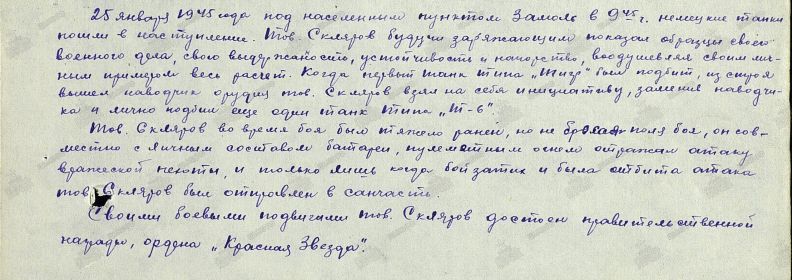 25 января 1945 года под населенным пунктом Замоль в 9⁴⁵ г. немецкие танки
пошли в наступление. Тов. Скляров будучи заряжающим показал образцы своего
военного дела, свою выдержаность, устойчивость и напорство, воодушевляя своим лич-
ным примером весь расчет. Когда первый танк типа „Тигр" был подбит, из строя
вышел наводчик орудия тов. Скляров взял на себя инициативу, заменив наводчи-
ка и лично подбил еще один танк типа „Т-6".
Тов. Скляров во время боя был тяжело ранен, но не бросал поля боя, он сов-
местно с личным составом батареи, пулеметным огнем отражал атаку
вражеской пехоты, и только лишь когда бой затих и была отбита атака
тов. Скляров был отправлен в санчасть.
Своими боевыми подвигами тов. Скляров достоен правительственной
награды, ордена „Красная Звезда".